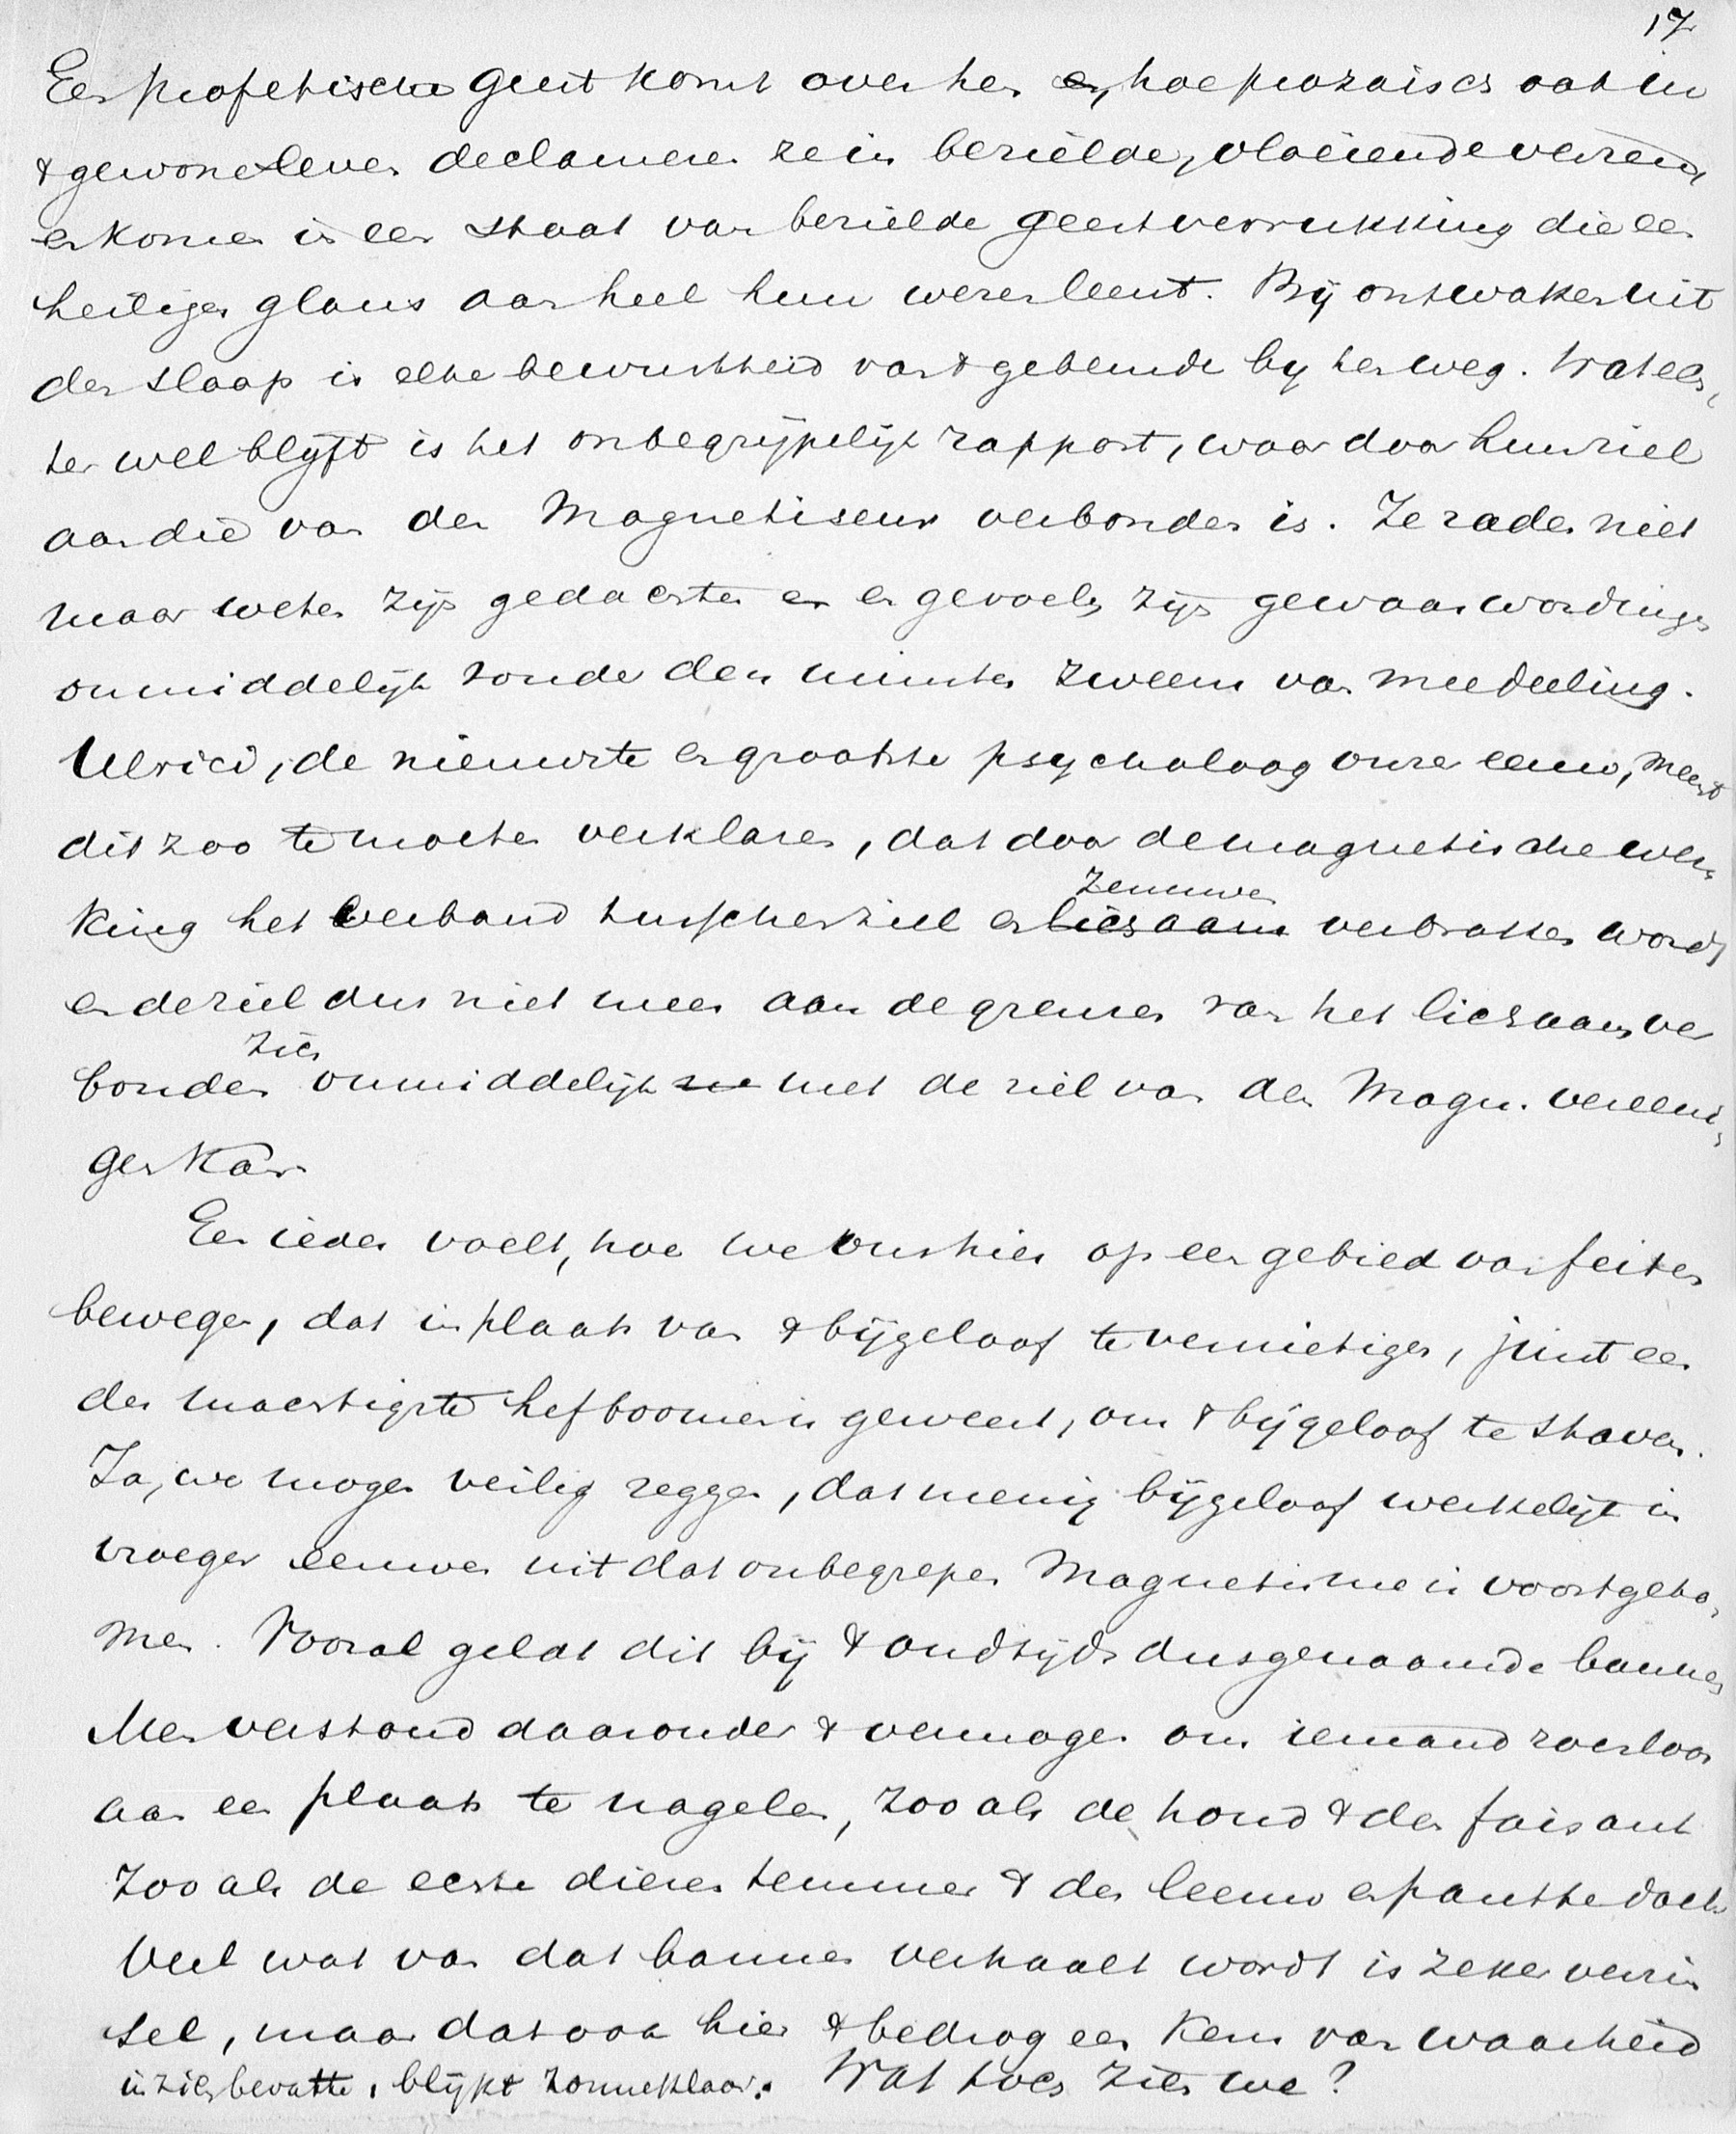 17
Een profetische geest komt over hen en, hoe prozaisch ook in
't gewone leven declameren ze in bezielde, vloeiende verzen,
en komen in een staat van bezielde geestverrukking die een
heiligen glans aan heel hun wezen leent. Bij ontwaken uit
den slaap is elke bewustheid van 't gebeurde by hen weg. Wat ech-
ter wel blijft is het onbegrijpelijk rapport, waardoor hun ziel
aan die van den Magnetiseur verbonden is. Ze raden niet
maar weten zijn gedachten en gevoelen zijn gewaarwordingen
onmiddelijk zonder den minsten zweem van meedeeling.
Ulrici, de nieuwste en grootste psycholoog onzer eeuw, meent
dit zoo te moeten verklaren, dat door de magnetische wer-
zenuwen
king het verband tusschen ziel en lichaam verbroken wordt
en de ziel dus niet meer aan de grenzen van het lichaam ver
zich
bonden onmiddelijk met de ziel van den Magn. vereeni-
gen kan
Een ieder voelt, hoe we ons hier op een gebied van feiten
bewegen, dat in plaats van 't bijgeloof te vernietigen, juist een
der machtigste hefboomen is geweest, om 't bijgeloof te staven.
Ja, we mogen veilig zeggen, dat menig bijgeloof werkelijk in
vroeger eeuwen uit dat onbegrepen Magnetisme is voortgeko-
men. Vooral geldt dit bij 't oudtijds dusgenaamde bannen
Men verstond daaronder 't vermogen om iemand roerloos
aan een plaats te nagelen, zooals de hond 't den faisant
zooals de echte dierentemmer 't den leeuw en panther doet
Veel wat van dat bannen verhaald wordt is zeker verzin
sel, maar dat ook hier 't bedrog een kern van waarheid
in zich bevatte, blijkt zonneklaar. Wat toch zien we?